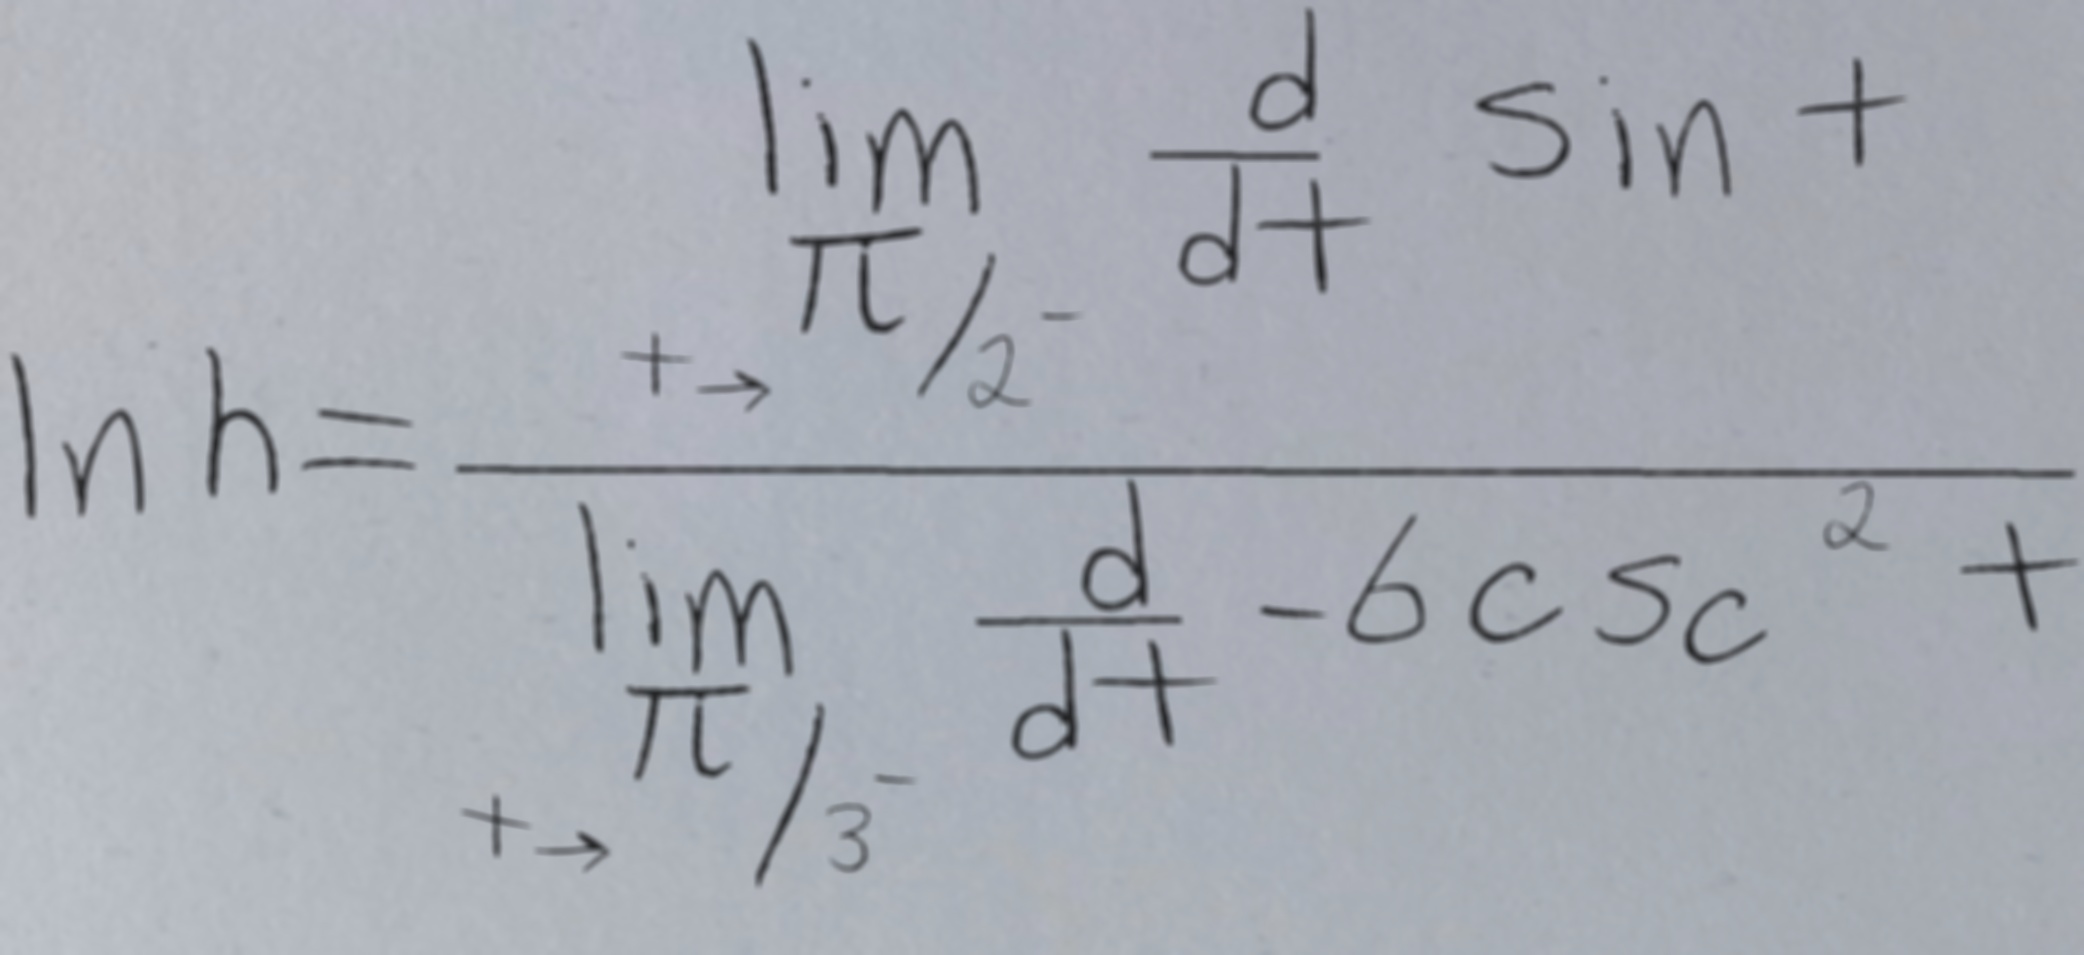 ln h = \frac{\lim_{t \to \pi/2^-} \frac{d}{dt} \sin t}{\lim_{t \to \pi/3^-} \frac{d}{dt} -6 \csc^2 t}